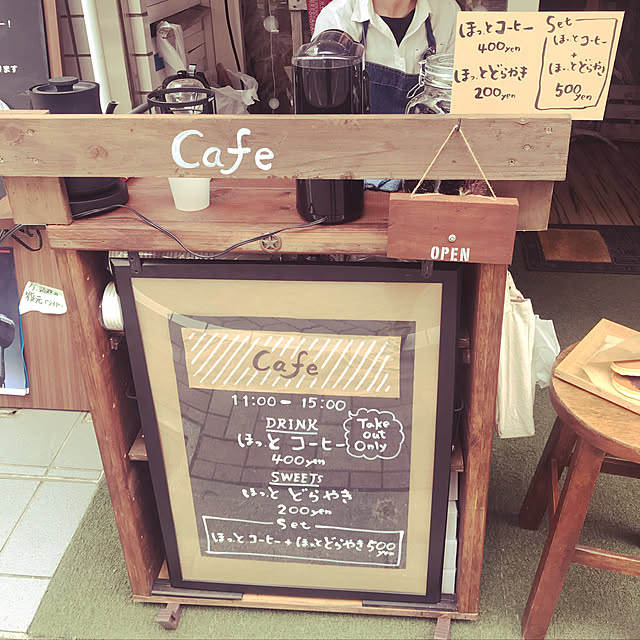 ー!
ります
ほっとコーヒー
400yen
ほっとどらやき
200yen
Set
ほっとコーヒー
+
ほっとどらやき
500yen
Cafe
OPEN
Cafe
11:00 - 15:00
DRINK
ほっと コーヒー
400yen
Take
out
Only
SWEETS
ほっと どらやき
200yen
Set
ほっとコーヒー+ほっとどらやき500yen